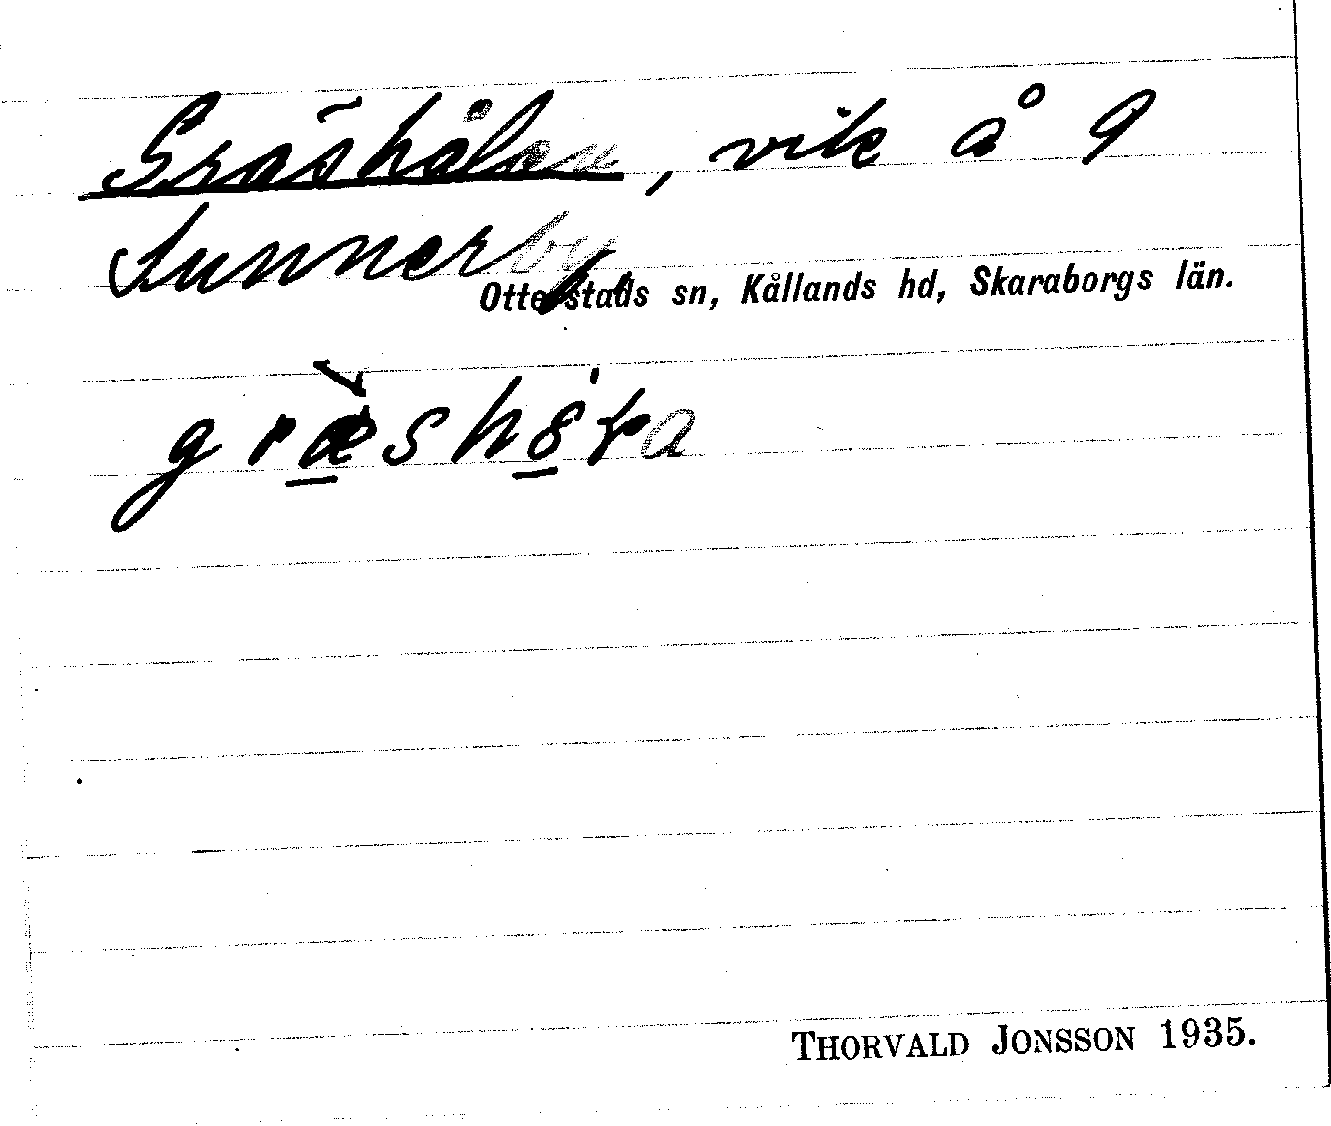 Gräshålan, vik å 9
Sunnerby,
Otterstads sn, Kållands hd, Skaraborgs län.
THORVALD JONSSON 1935.